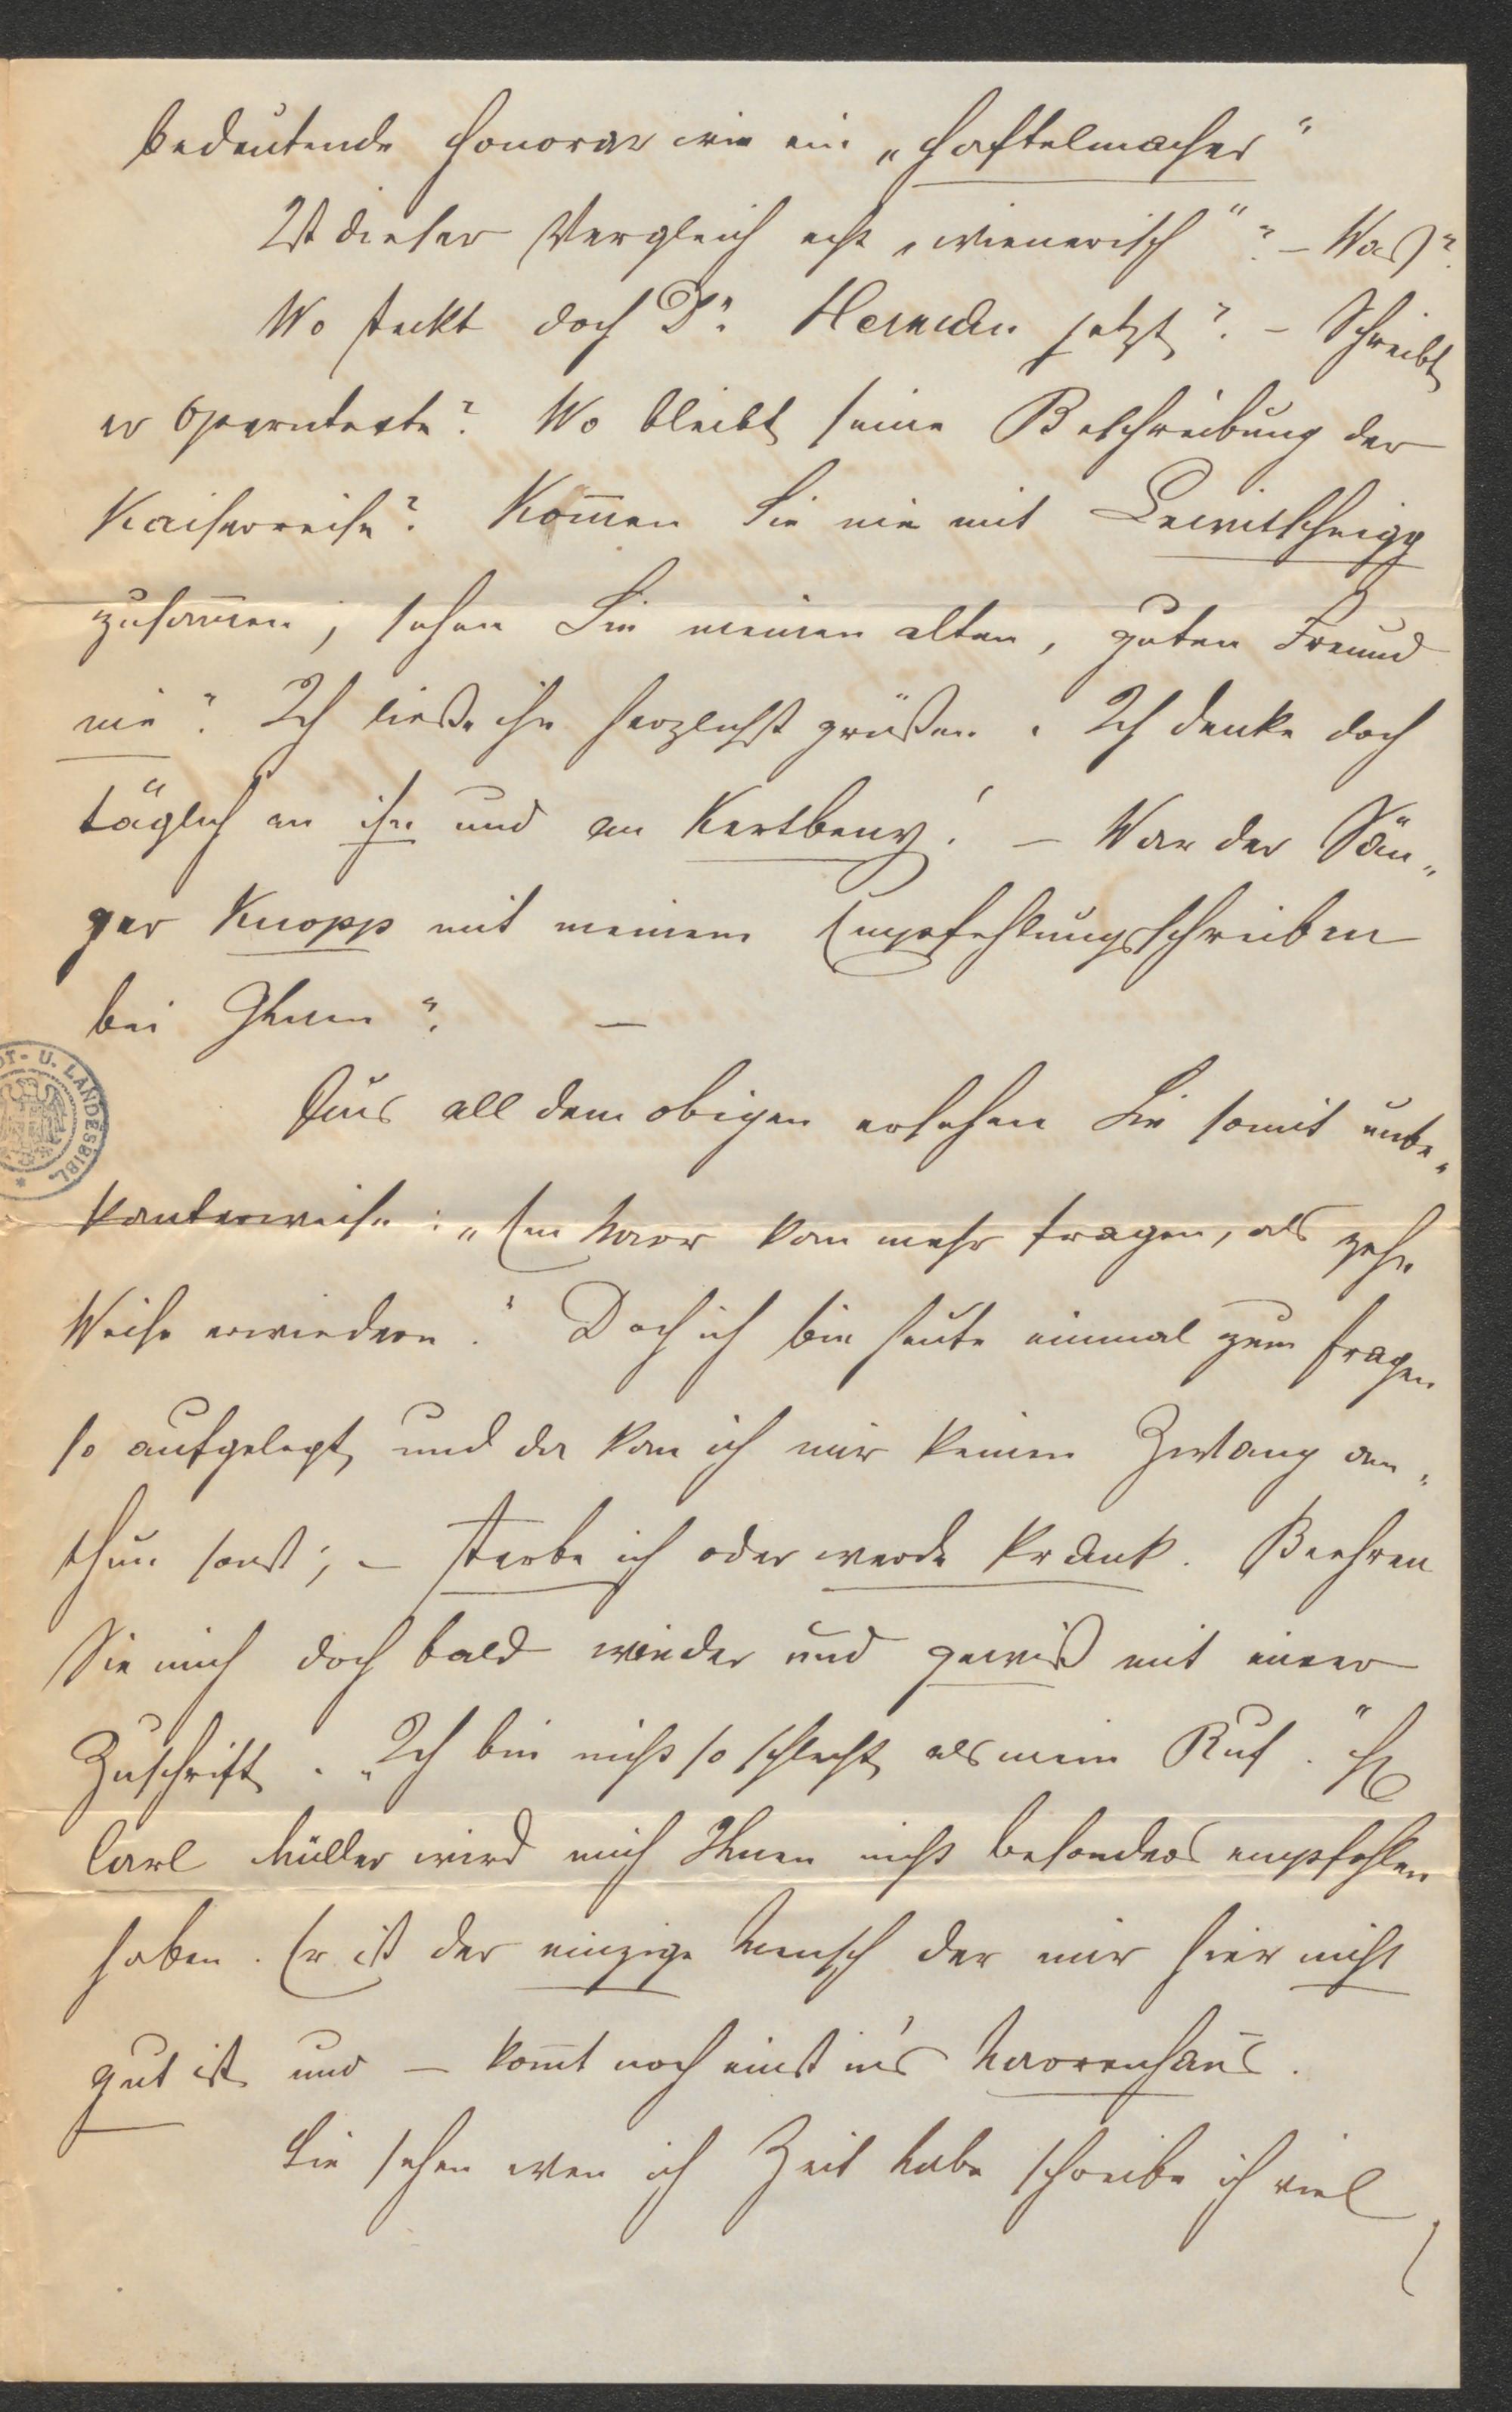 bedeutende Honorar wie ein „Haftelmacher“
Ist dieser Vergleich echt „wienerisch“? – Was?
Wo steckt doch Dr. Herman jetzt? – Schreibt
er Operntexte? Wo bleibt seine Beschreibung der
Kaiserreise? Kom̄en Sie nie mit Levitschnigg
zusam̄en; sehen Sie meinen alten, guten Freund
nie? Ich ließe ihn herzlichst grüßen. Ich denke doch
täglich an ihn und an Kertbeny! – War der Sän„
ger Knopp mit meinem Empfehlungsschreiben
bei Ihnen? –
Aus all dem obigen ersehen Sie somit unbe„
kanterweise: „Ein Narr kan mehr fragen, als zehn
Weise erwiedern.“ Doch ich bin heute einmal zum fragen
so aufgelegt und da kan ich mir keinen Zwang an„
thun sonst; – sterbe ich oder werde krank. Beehren
Sie mich doch bald wieder und gewiß mit einer
Zuschrift. „Ich bin nicht so schlecht als mein Ruf.“ H
Carl Müller wird mich Ihnen nicht besonders empfohlen
haben. Er ist der einzige Mensch der mir hier nicht
gut ist und – kom̄t noch einst in's Narrenhaus.
Sie sehen wen ich Zeit habe schreibe ich viel
DT- U. LANDESBIBL.